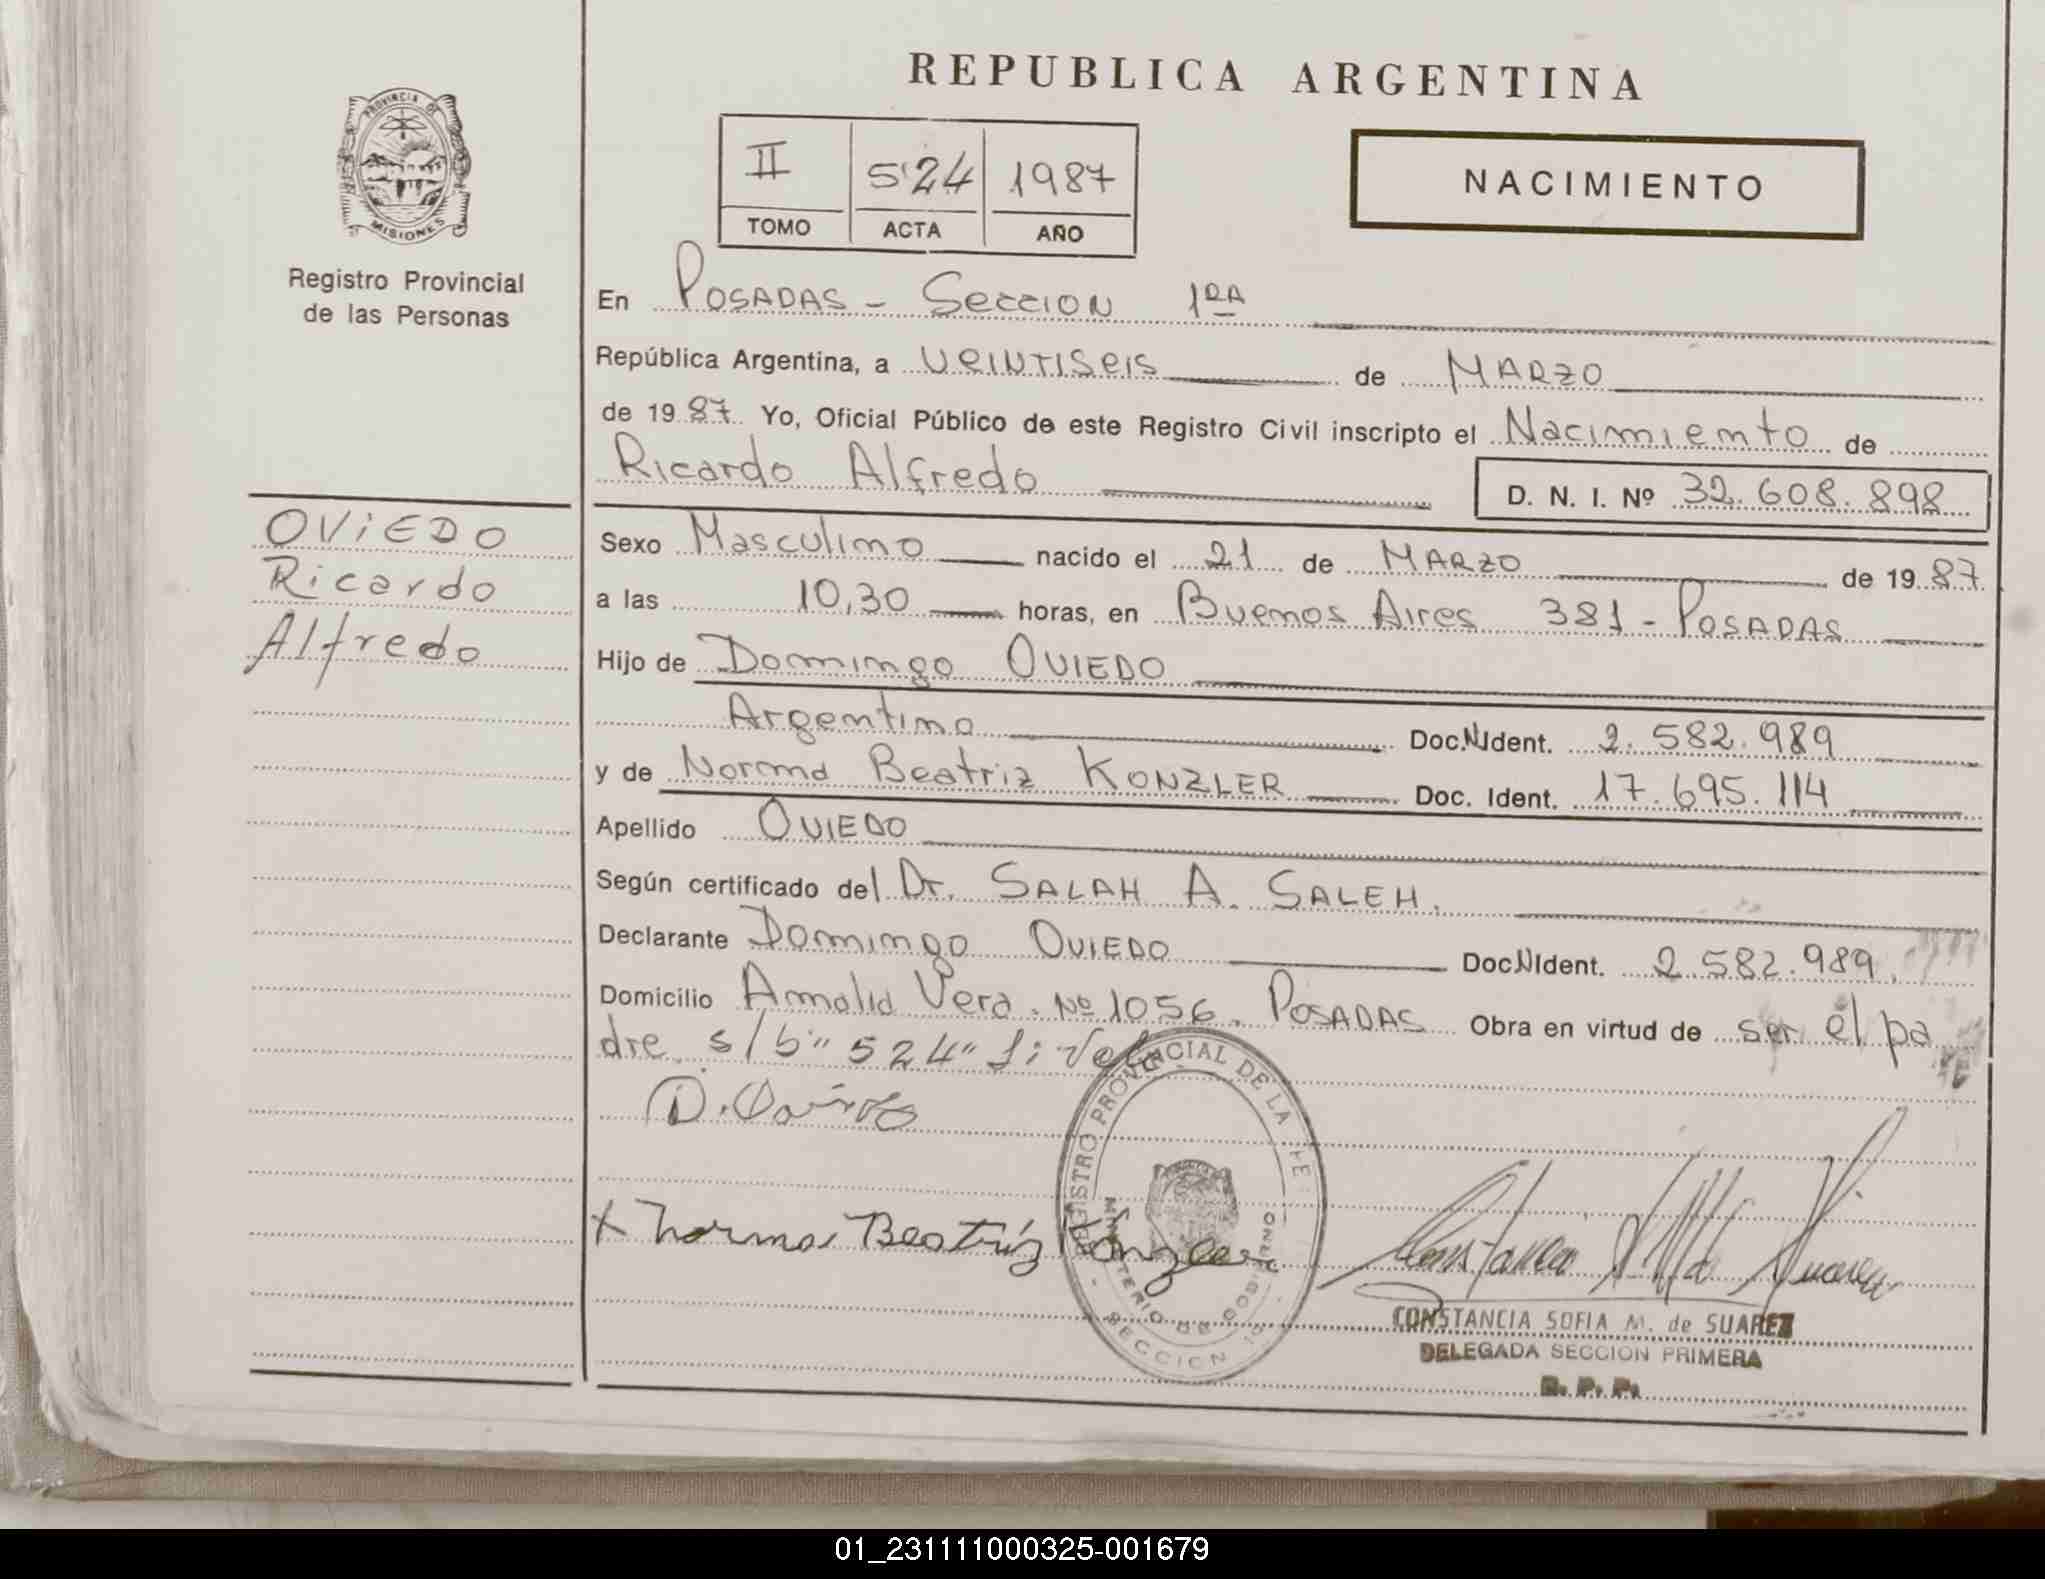 REPUBLICA ARGENTINA
PROVINCIA DE
MISIONES
Registro Provincial
de las Personas
II 524 1987
TOMO ACTA AÑO
NACIMIENTO
En POSADAS - Seccion 1RA
República Argentina, a veintiseis de MARZO
de 1987 Yo, Oficial Público de este Registro Civil inscripto el Nacimiento de
Ricardo Alfredo D. N. I. Nº 32.608.898
OVIEDO
Ricardo
Alfredo
Sexo Masculino nacido el 21 de MARZO de 1987
a las 10,30 horas, en Buenos Aires 381 - POSADAS
Hijo de Domingo OVIEDO
Argentino Doc.N.Ident. 2.582.989
y de Norma Beatriz KONZLER Doc. Ident. 17.695.114
Apellido OVIEDO
Según certificado del Dr. SALAH A. SALEH.
Declarante Domingo OVIEDO Doc.N.Ident. 2.582.989.
Domicilio Arnalid Vera. Nº 1056. POSADAS Obra en virtud de ser el pa
dre. s/b "524"
D. Oviedo
x Norma Beatríz Konzler
REGISTRO PROVINCIAL DE LA
MINISTERIO DE GOBIERNO
SECCION 1a
CONSTANCIA SOFIA M. de SUAREZ
DELEGADA SECCION PRIMERA
R. P. P.
01_231111000325-001679